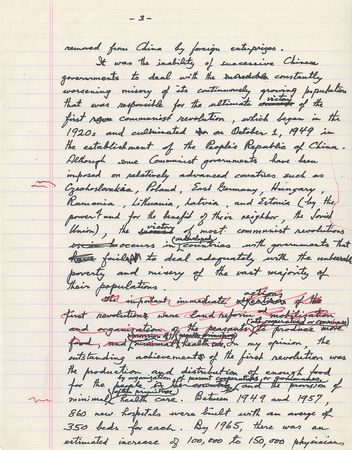 - 3 -
removed from China by foreign enterprises.
It was the inability of successive Chinese
governments to deal with the incredible constantly
worsening misery of its continuously growing population
victory
that was responsible for the ultimate of the
first communist revolution, which began in the
1920s and culminated on October 1, 1949 in
the establishment of the People's Republic of China.
Although some Communist governments have been
imposed on relatively advanced countries such as
Czechoslovakia, Poland, East Germany, Hungary,
Rumania, Lithuania, Latvia, and Estonia (by the
power and for the benefit of their neighbor, the Soviet
victory
Union), the of most communist revolutions
occurs in countries with governments that
fail to deal adequately with the unbearable
poverty and misery of the vast majority of
their populations.
important immediate actions of the
first revolution were land reform mobilization
and organization of the peasants to produce more
food, and health care. In my opinion, the
outstanding achievement of the first revolution was
the production and distribution of enough food
by organization of peasant cooperatives or
for the people and the provision of
minimal health care. Between 1949 and 1957,
860 new hospitals were built with an averge of
350 beds for each. By 1965, there was an
estimated increase of 100,000 to 150,000 physicians